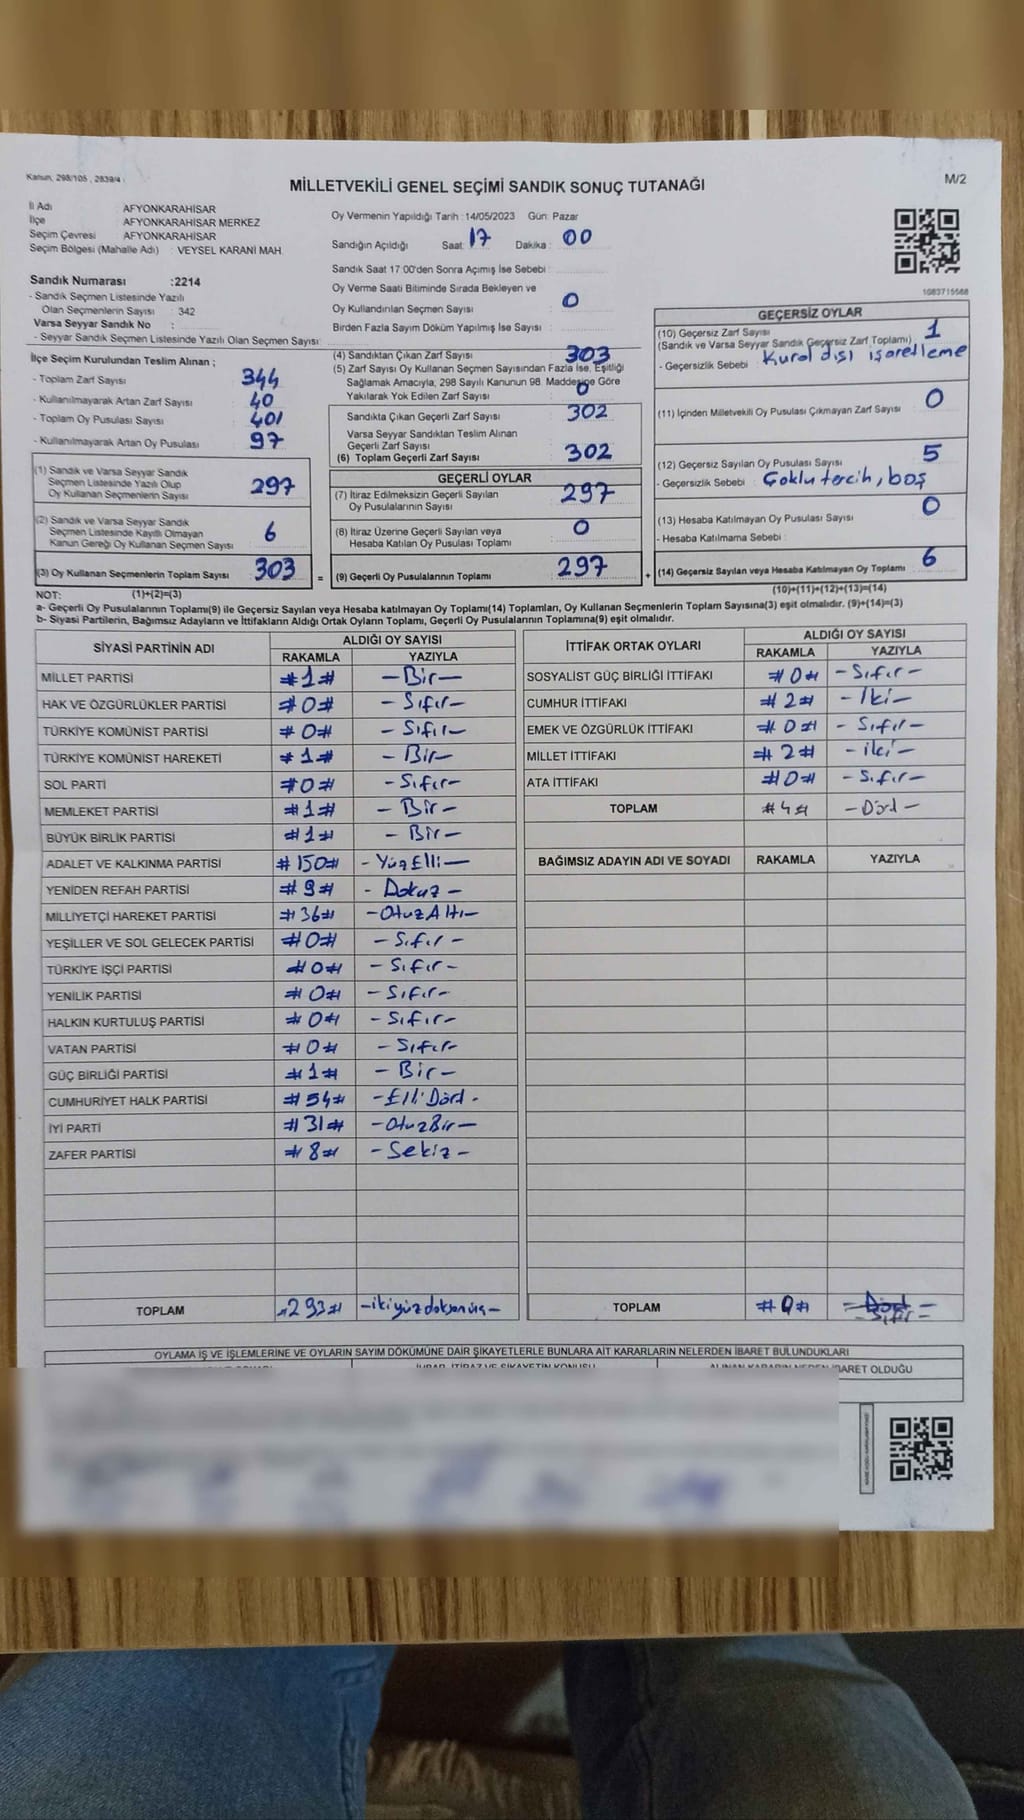 Kanun, 298/105 , 2839/4
MİLLETVEKİLİ GENEL SEÇİMİ SANDIK SONUÇ TUTANAĞI
M/2
İl Adı AFYONKARAHİSAR
İlçe AFYONKARAHİSAR MERKEZ
Seçim Çevresi AFYONKARAHİSAR
Seçim Bölgesi (Mahalle Adı) : VEYSEL KARANİ MAH.
Oy Vermenin Yapıldığı Tarih :14/05/2023 Gün: Pazar
Sandığın Açıldığı Saat: 17 Dakika : 00
Sandık Saat 17:00'den Sonra Açımış İse Sebebi :
Oy Verme Saati Bitiminde Sırada Bekleyen ve
Oy Kullandırılan Seçmen Sayısı 0
Birden Fazla Sayım Döküm Yapılmış İse Sayısı :
1083715568
Sandık Numarası :2214
- Sandık Seçmen Listesinde Yazılı
Olan Seçmenlerin Sayısı : 342
Varsa Seyyar Sandık No :
- Seyyar Sandık Seçmen Listesinde Yazılı Olan Seçmen Sayısı:
İlçe Seçim Kurulundan Teslim Alınan ;
- Toplam Zarf Sayısı 344
- Kullanılmayarak Artan Zarf Sayısı 40
- Toplam Oy Pusulası Sayısı 401
- Kullanılmayarak Artan Oy Pusulası 97
(1) Sandık ve Varsa Seyyar Sandık
Seçmen Listesinde Yazılı Olup
Oy Kullanan Seçmenlerin Sayısı 297
(2) Sandık ve Varsa Seyyar Sandık
Seçmen Listesinde Kayıtlı Olmayan
Kanun Gereği Oy Kullanan Seçmen Sayısı 6
(3) Oy Kullanan Seçmenlerin Toplam Sayısı 303 =
(4) Sandıktan Çıkan Zarf Sayısı 303
(5) Zarf Sayısı Oy Kullanan Seçmen Sayısından Fazla İse, Eşitliği
Sağlamak Amacıyla, 298 Sayılı Kanunun 98. Maddesine Göre
Yakılarak Yok Edilen Zarf Sayısı 0
Sandıkta Çıkan Geçerli Zarf Sayısı 302
Varsa Seyyar Sandıktan Teslim Alınan
Geçerli Zarf Sayısı
(6) Toplam Geçerli Zarf Sayısı 302
GEÇERLİ OYLAR
(7) İtiraz Edilmeksizin Geçerli Sayılan
Oy Pusulalarının Sayısı 297
(8) İtiraz Üzerine Geçerli Sayılan veya
Hesaba Katılan Oy Pusulası Toplamı 0
(9) Geçerli Oy Pusulalarının Toplamı 297 +
GEÇERSİZ OYLAR
(10) Geçersiz Zarf Sayısı 1
(Sandık ve Varsa Seyyar Sandık Geçersiz Zarf Toplamı)
- Geçersizlik Sebebi : Kural dışı işaretleme
(11) İçinden Milletvekili Oy Pusulası Çıkmayan Zarf Sayısı 0
(12) Geçersiz Sayılan Oy Pusulası Sayısı 5
- Geçersizlik Sebebi : Çoklu tercih, boş
(13) Hesaba Katılmayan Oy Pusulası Sayısı 0
- Hesaba Katılmama Sebebi :
(14) Geçersiz Sayılan veya Hesaba Katılmayan Oy Toplamı 6
NOT: (1)+(2)=(3) (10)+(11)+(12)+(13)=(14)
a- Geçerli Oy Pusulalarının Toplamı(9) ile Geçersiz Sayılan veya Hesaba katılmayan Oy Toplamı(14) Toplamları, Oy Kullanan Seçmenlerin Toplam Sayısına(3) eşit olmalıdır. (9)+(14)=(3)
b- Siyasi Partilerin, Bağımsız Adayların ve İttifakların Aldığı Ortak Oyların Toplamı, Geçerli Oy Pusulalarının Toplamına(9) eşit olmalıdır.
SİYASİ PARTİNİN ADI ALDIĞI OY SAYISI
RAKAMLA YAZIYLA
MİLLET PARTİSİ #1# -Bir-
HAK VE ÖZGÜRLÜKLER PARTİSİ #0# -Sıfır-
TÜRKİYE KOMÜNİST PARTİSİ #0# -Sıfır-
TÜRKİYE KOMÜNİST HAREKETİ #1# -Bir-
SOL PARTİ #0# -Sıfır-
MEMLEKET PARTİSİ #1# -Bir-
BÜYÜK BİRLİK PARTİSİ #1# -Bir-
ADALET VE KALKINMA PARTİSİ #150# -Yüz Elli-
YENİDEN REFAH PARTİSİ #9# -Dokuz-
MİLLİYETÇİ HAREKET PARTİSİ #36# -Otuz Altı-
YEŞİLLER VE SOL GELECEK PARTİSİ #0# -Sıfır-
TÜRKİYE İŞÇİ PARTİSİ #0# -Sıfır-
YENİLİK PARTİSİ #0# -Sıfır-
HALKIN KURTULUŞ PARTİSİ #0# -Sıfır-
VATAN PARTİSİ #0# -Sıfır-
GÜÇ BİRLİĞİ PARTİSİ #1# -Bir-
CUMHURİYET HALK PARTİSİ #54# -Elli Dört-
İYİ PARTİ #31# -Otuz Bir-
ZAFER PARTİSİ #8# -Sekiz-
TOPLAM #293# -iki yüz doksan üç-
İTTİFAK ORTAK OYLARI ALDIĞI OY SAYISI
RAKAMLA YAZIYLA
SOSYALİST GÜÇ BİRLİĞİ İTTİFAKI #0# -Sıfır-
CUMHUR İTTİFAKI #2# -İki-
EMEK VE ÖZGÜRLÜK İTTİFAKI #0# -Sıfır-
MİLLET İTTİFAKI #2# -iki-
ATA İTTİFAKI #0# -Sıfır-
TOPLAM #4# -Dört-
BAĞIMSIZ ADAYIN ADI VE SOYADI RAKAMLA YAZIYLA
TOPLAM #0# -Sıfır-
OYLAMA İŞ VE İŞLEMLERİNE VE OYLARIN SAYIM DÖKÜMÜNE DAİR ŞİKAYETLERLE BUNLARA AİT KARARLARIN NELERDEN İBARET BULUNDUKLARI
İHBAR, İTİRAZ VE ŞİKAYETİN KONUSU
ALINAN KARARIN NEDEN İBARET OLDUĞU